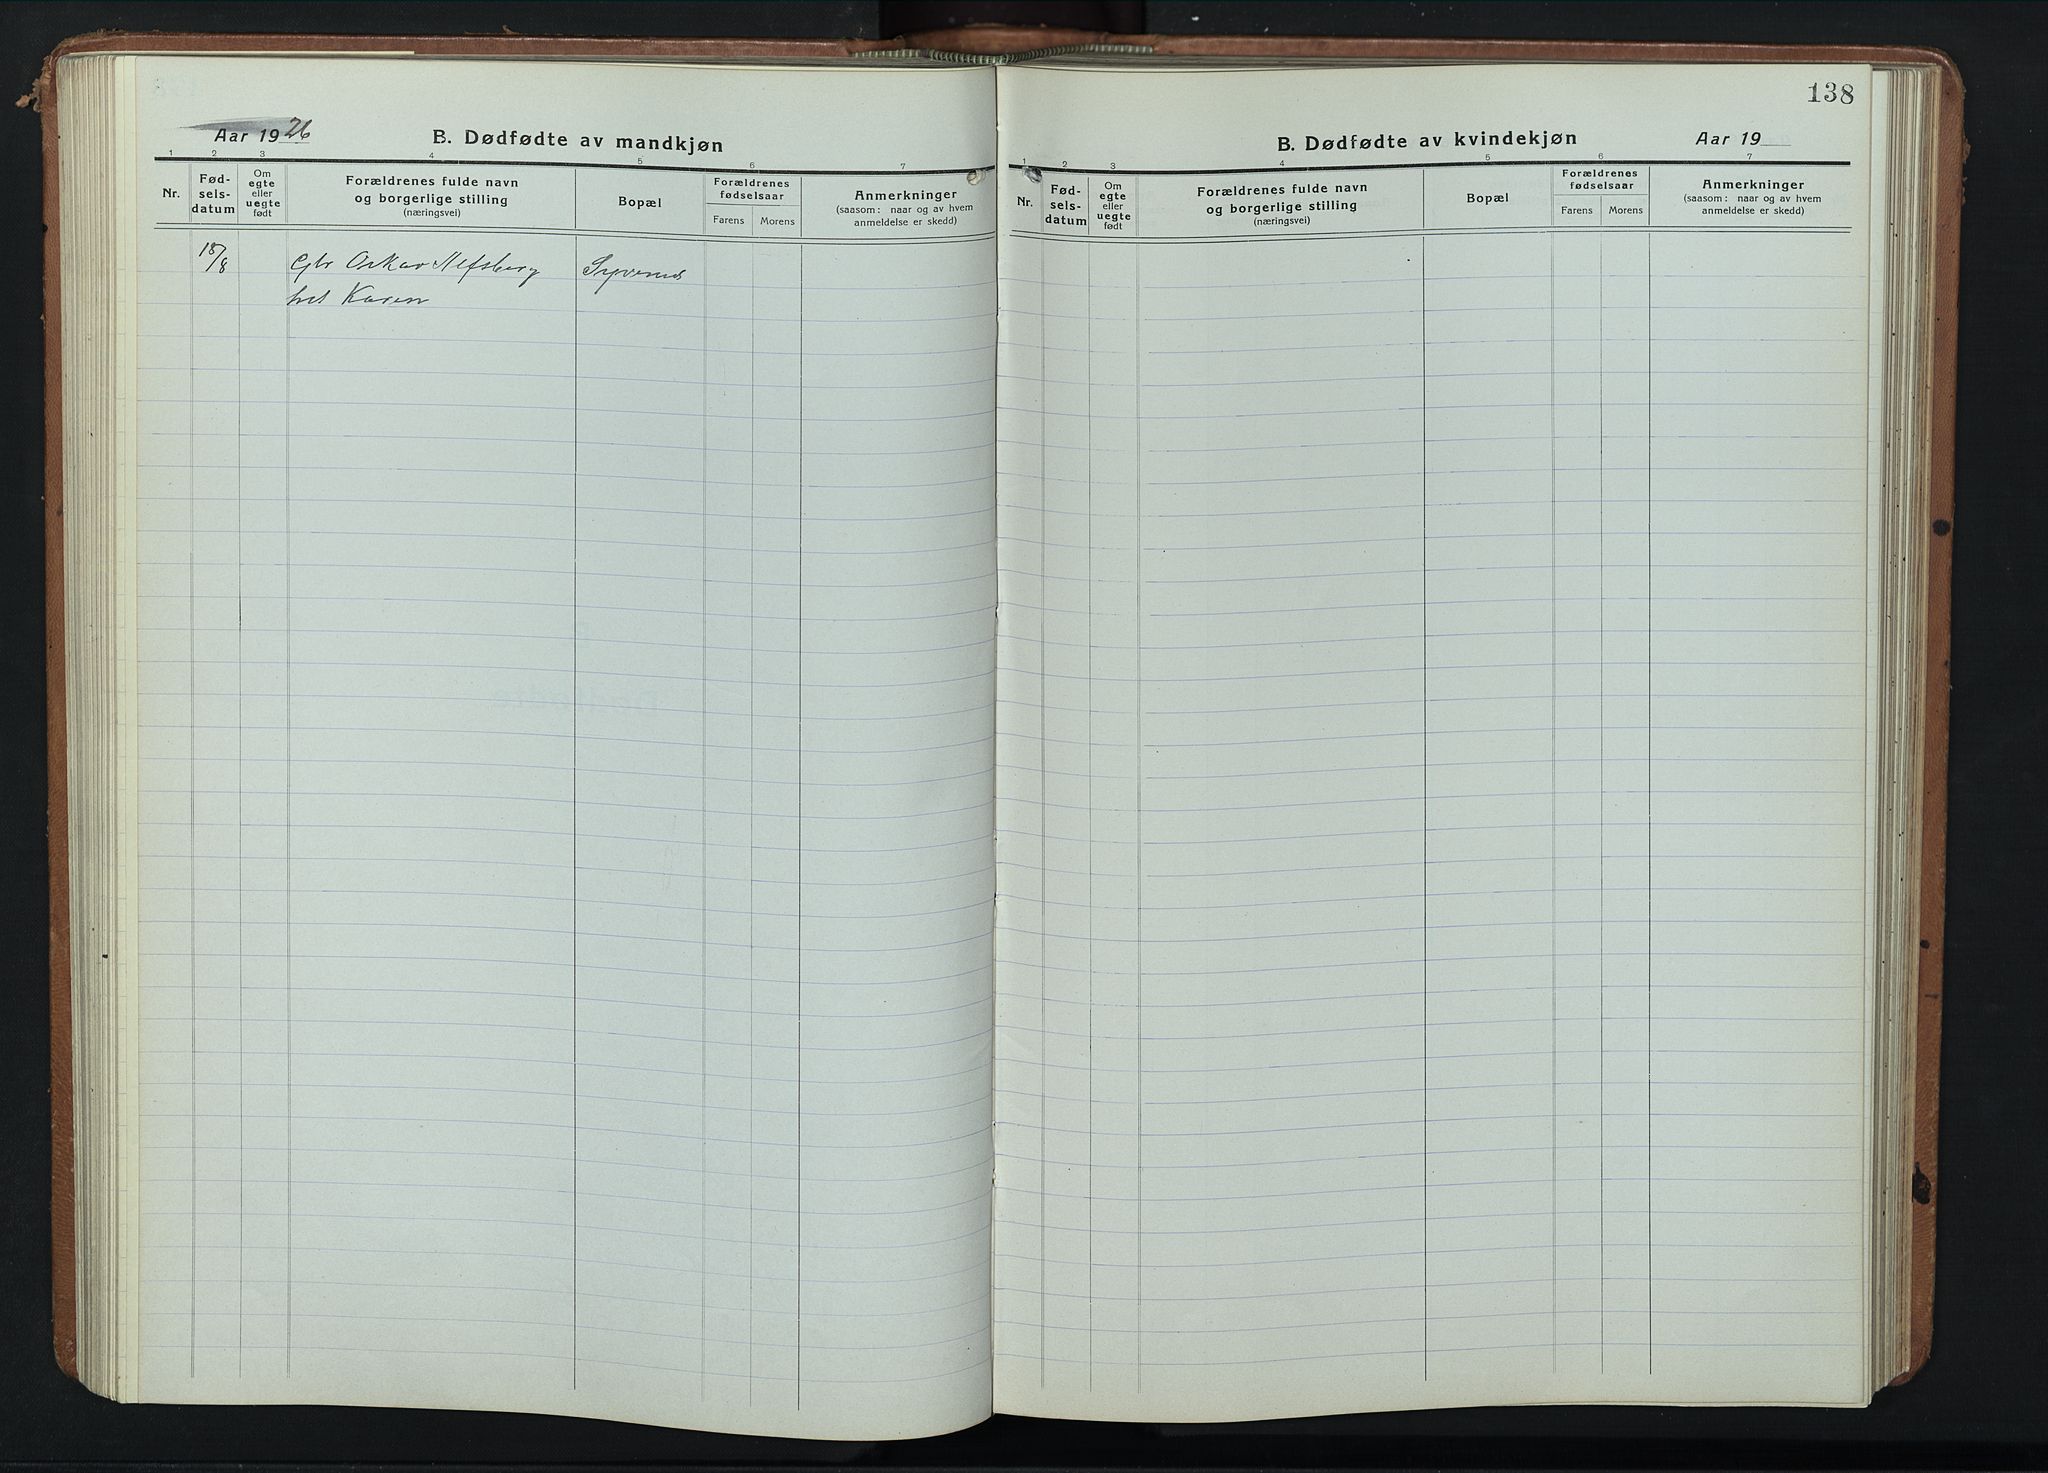 Aar 1926
B. Dødfødte av mandkjøn
1 2 3 4 5 6 7
Nr.
Fød-
sels-
datum
Om
egte
eller
uegte
født
Forældrenes fulde navn
og borgerlige stilling
(næringsvei)
Bopæl
Forældrenes
fødselsaar
Farens Morens
Anmerkninger
(saasom: naar og av hvem
anmeldelse er skedd)
18/8 Gbr Oskar
Karen
138
B. Dødfødte av kvindekjøn
Aar 19
1 2 3 4 5 6 7
Nr.
Fød-
sels-
datum
Om
egte
eller
uegte
født
Forældrenes fulde navn
og borgerlige stilling
(næringsvei)
Bopæl
Forældrenes
fødselsaar
Farens Morens
Anmerkninger
(saasom: naar og av hvem
anmeldelse er skedd)